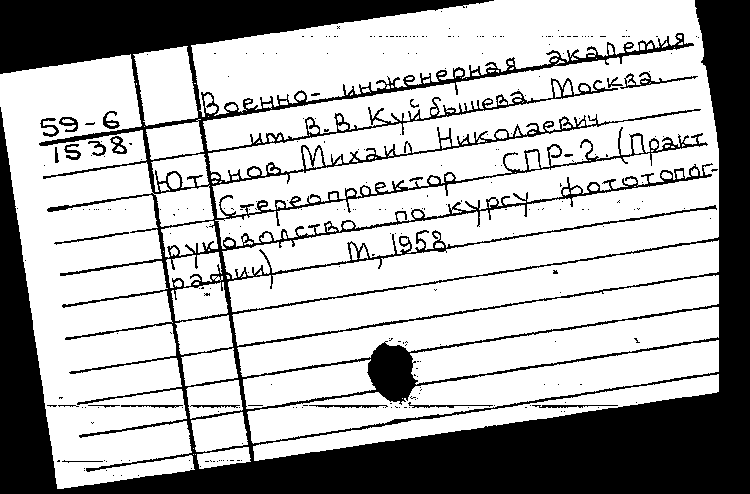 Военно-инженерная академия
59-6
им. В.В. Куйбышева. Москва.
1538.
Ютанов, Михаил Николаевич.
Стереопроектор СПР-2. (Практ
руководство по курсу фототопог-
рафии) М., 1958.